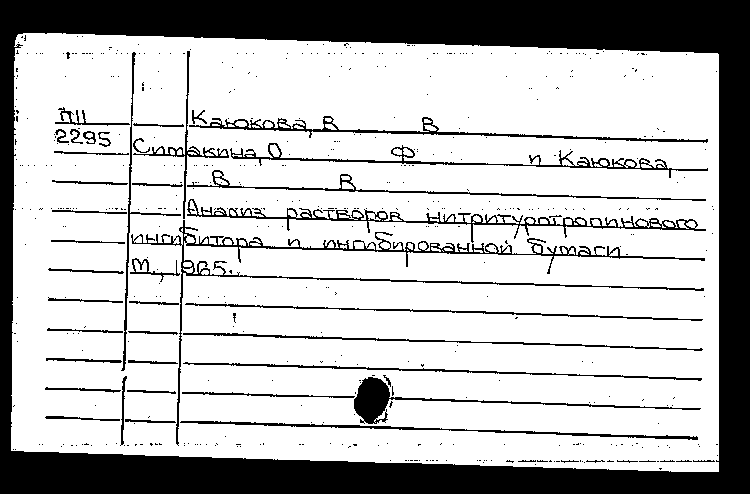 П11 Каюкова, В В
2295 Ситакина, О Ф и Каюкова,
В В.
Анализ растворов нитритуротропинового
ингибитора и ингибированной бумаги.
М., 1965.